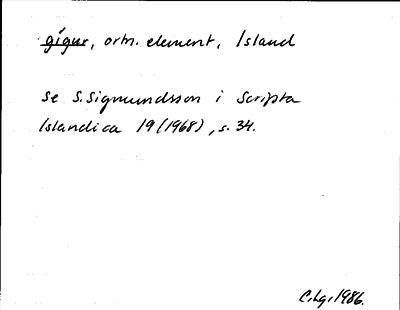 gígur, ortn. element, Island
se S. Sigmundsson i Scripta
Islandica 19 (1968), s. 34.
C.Lg. 1986.